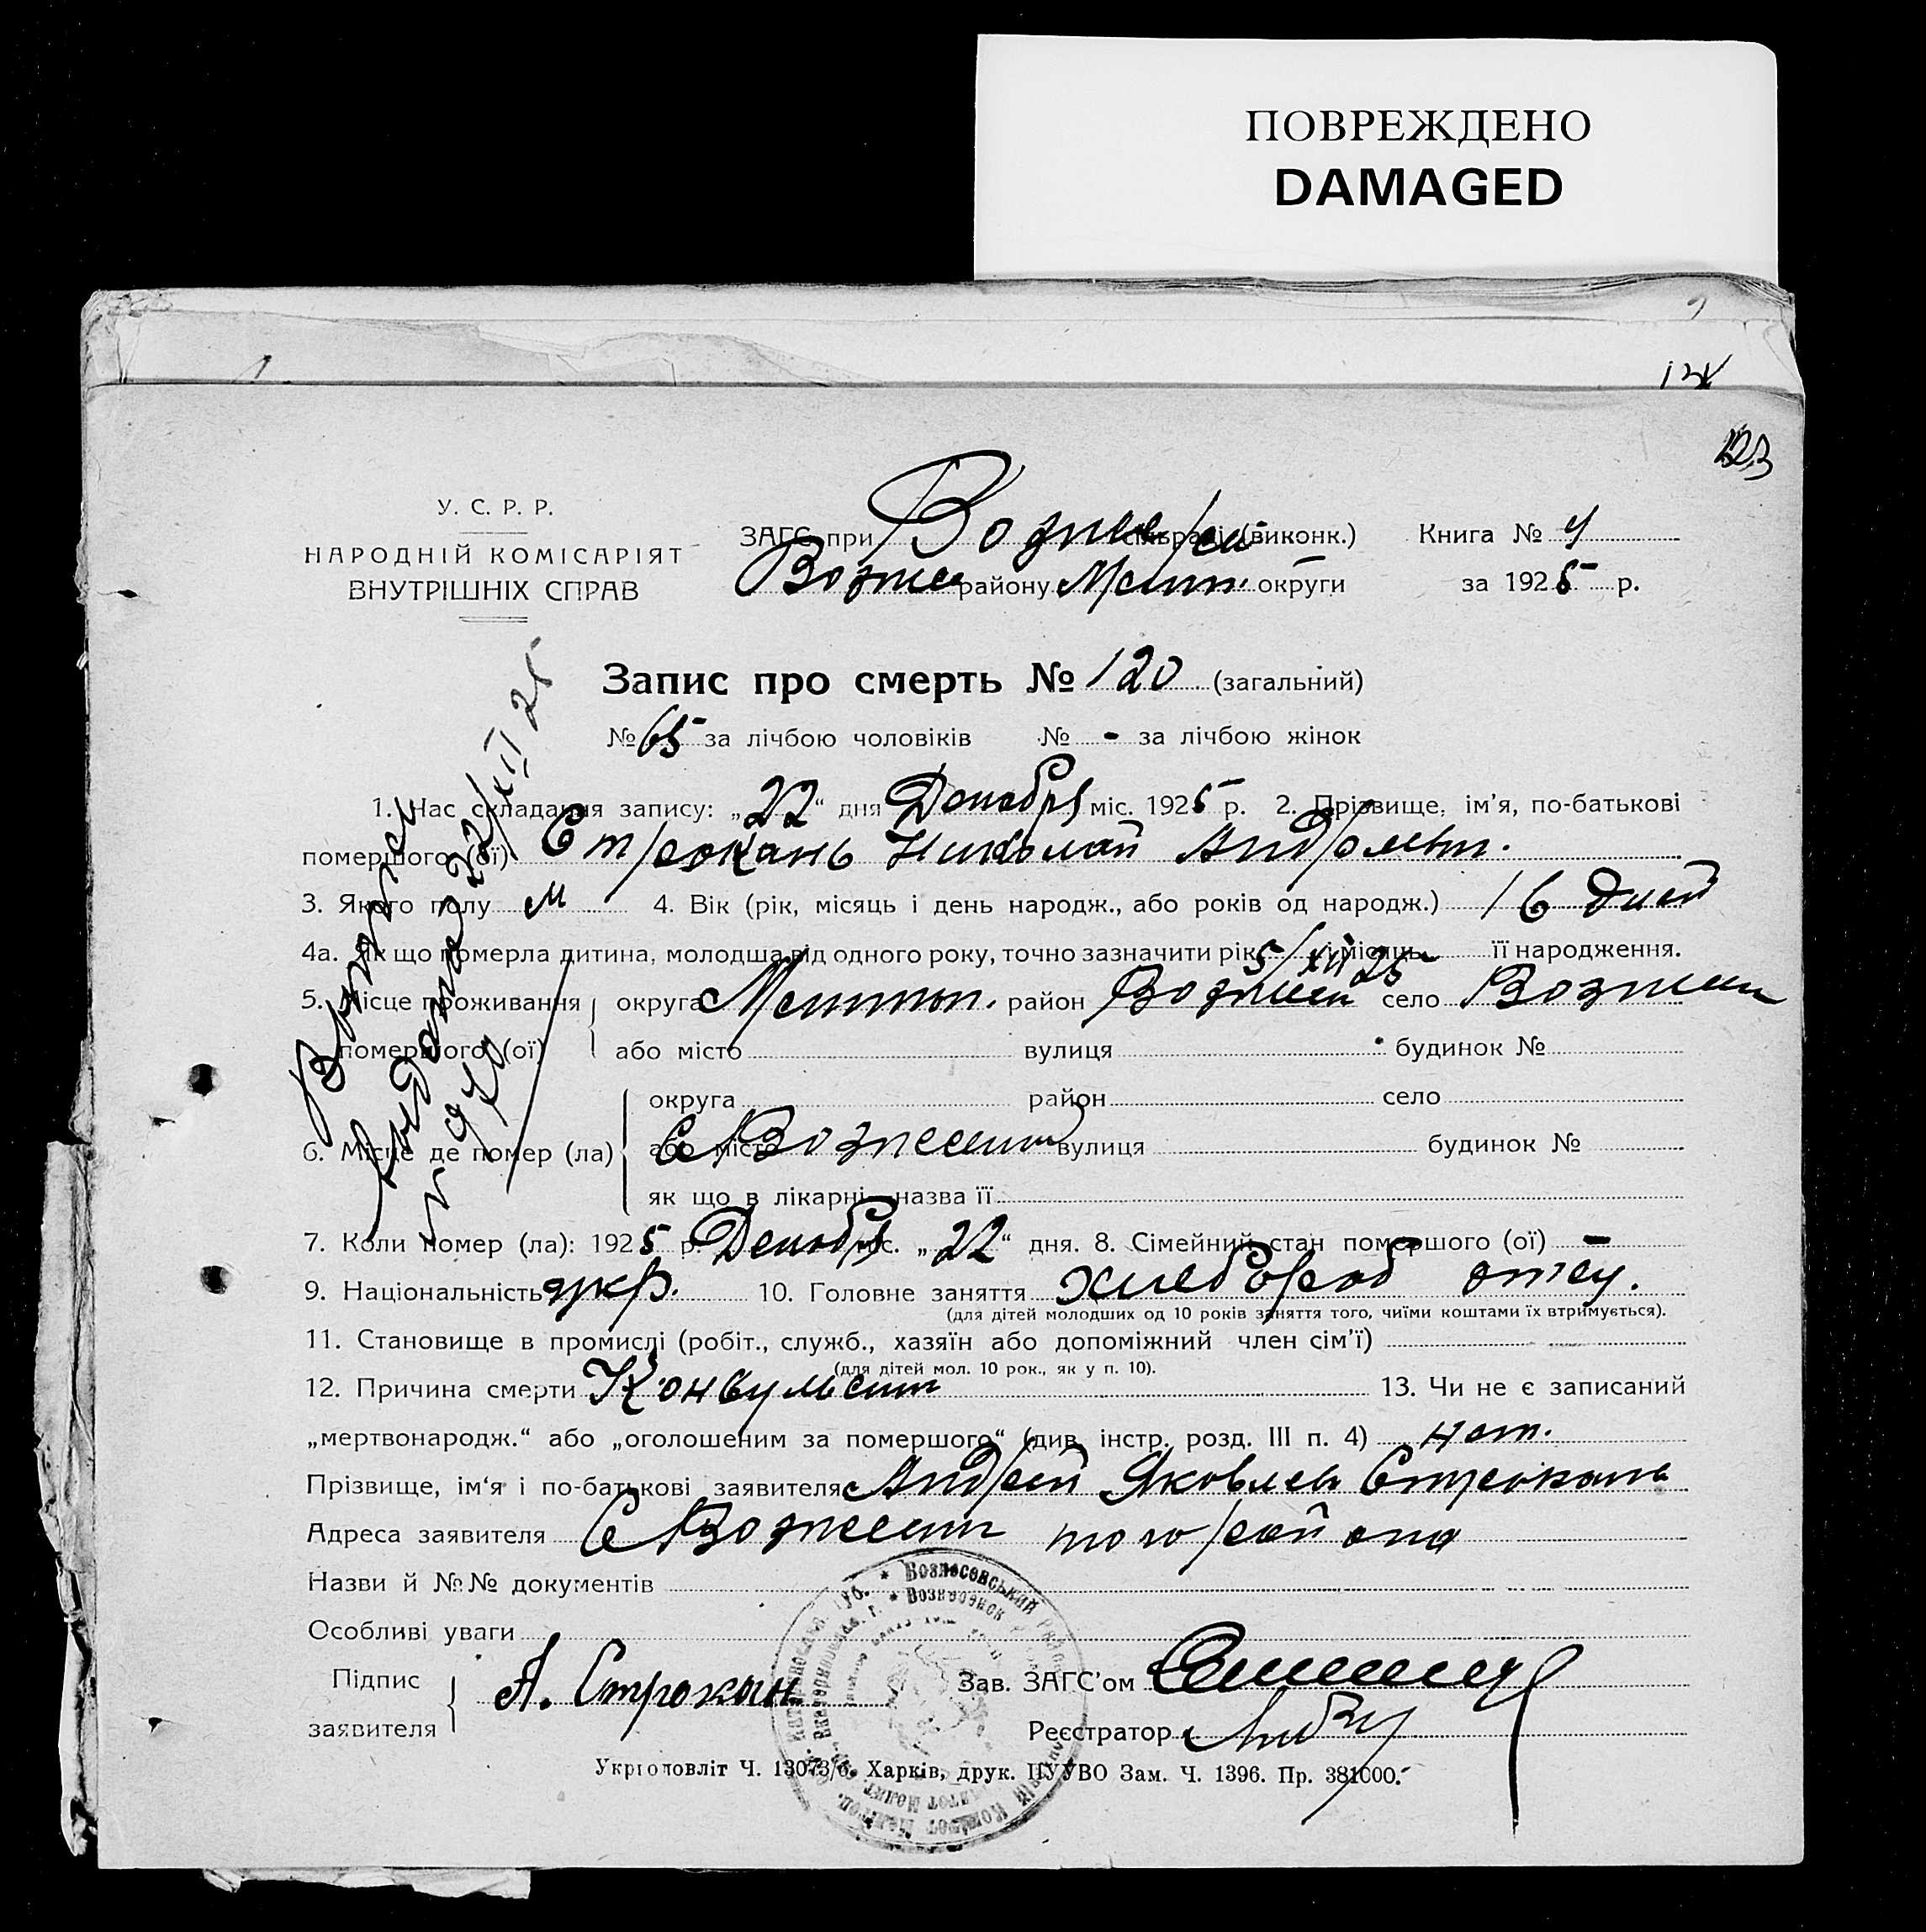 ПОВРЕЖДЕНО
DAMAGED
123
У. С. Р. Р.
НАРОДНІЙ КОМІСАРІЯТ
ВНУТРІШНІХ СПРАВ
ЗАГС при Вознес/рай сільраді (виконк.) Книга № 4
Вознес району Мелит. округи за 1925 р.
Запис про смерть № 120 (загальний)
№ 65 за лічбою чоловіків № - за лічбою жінок
1. Час складання запису: „22“ дня Декабря міс. 1925 р. 2. Прізвище, ім'я, по-батькові
помершого (ої) Строкань Николай Андреевич.
3. Якого полу м 4. Вік (рік, місяць і день народж., або років од народж.) 16 дней
4а. Як що померла дитина, молодша від одного року, точно зазначити рік 5/XII 25 і місяць її народження.
5. Місце проживання округа Мелитоп. район Вознесен село Вознесен
помершого (ої) або місто вулиця будинок №
округа район село
6. Місце де помер (ла) або місто С Вознесен вулиця будинок №
як що в лікарні, назва її
7. Коли помер (ла): 1925 р. Декабр міс. „22“ дня. 8. Сімейний стан помершого (ої) -
9. Національність укр. 10. Головне заняття Хлебороб отец.
(для дітей молодших од 10 років заняття того, чиїми коштами їх втримується).
11. Становище в промислі (робіт., служб., хазяїн або допоміжний член сім'ї)
(для дітей мол. 10 рок., як у п. 10).
12. Причина смерти Конвульсии 13. Чи не є записаний
„мертвонародж.“ або „оголошеним за помершого“ (див. інстр. розд. III п. 4) нет.
Прізвище, ім'я і по-батькові заявителя Андрей Яковлев Строкань
Адреса заявителя С Вознесен того района
Назви й №№ документів
Особливі уваги
Підпис
заявителя
А. Строкан
Зав. ЗАГС'ом
Реєстратор
Укрголовліт Ч. 13073/б. Харків, друк. ЦУУВО Зам. Ч. 1396. Пр. 381000.
Выпись
выдана 22/XII 25
№ 970